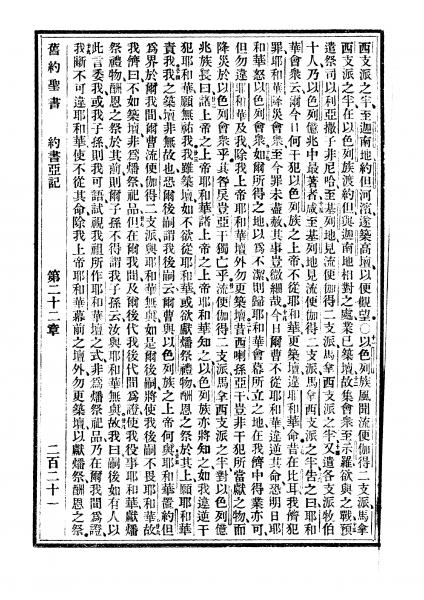 西支派之半至迦南地約但河濱遂築高壇以便觀望○以色列族風聞流便伽得二支派馬拿
西支派之半在以色列族渡約但與迦南地相對之處業已築壇故集會衆至示羅欲與之戰預
遣祭司以利亞撒子非尼哈至基列地見流便伽得二支派馬拿西支派之半又遣各支派牧伯
十人乃以色列億兆中最著者咸至基列地見流便伽得二支派馬拿西支派之半告之曰耶和
華會衆云爾今日何干犯以色列族之上帝不從耶和華更築壇違耶和華命昔在比耳我儕犯
罪耶和華降災會衆至今罪未盡赦其事豈微細哉今日爾曹不從耶和華違逆其命恐明日耶
和華怒以色列會衆如爾所得之地以爲不潔則歸耶和華會幕所立之地在我儕中得業亦可
但勿違耶和華及我除我上帝耶和華壇外勿更築壇昔西喇孫亞干豈非干犯所當獻之物而
降災於以色列會衆乎其咎戾豈亞干獨亡乎流便伽得二支派馬拿西支派之半對以色列億
兆族長曰諸上帝之上帝耶和華諸上帝之上帝耶和華知之以色列族亦將知之如我違逆干
犯耶和華願無祐我我雖築壇如不欲從耶和華或欲獻燔祭禮物酬恩之祭於其上願耶和華
責我我之築壇非無故也恐爾後嗣謂我後嗣云爾曹與以色列族之上帝何與耶和華置約但
爲界於爾我間爾曹流便伽得二支派與耶和華無與如是爾後嗣將使我後嗣不畏耶和華故
我儕曰不如築壇非爲燔祭祀品但在爾我間及爾後代我後代間爲證使我役事耶和華獻燔
祭禮物酬恩之祭於其前則爾子孫不得謂我子孫云汝與耶和華無與故我曰嗣後如有人以
此言委我或我子孫則我可語試視我祖所作耶和華壇之式非爲燔祭祀品乃在爾我間爲證
我斷不可違耶和華使不從其命除我上帝耶和華幕前之壇外勿更築壇以獻燔祭酬恩之祭
舊約聖書 約書亞記 第二十二章 二百二十一